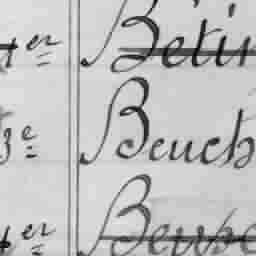 1er Bétin
3e Beuch
1er Beuve